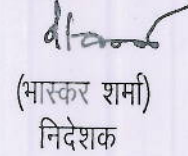 (भास्कर शर्मा)
निदेशक